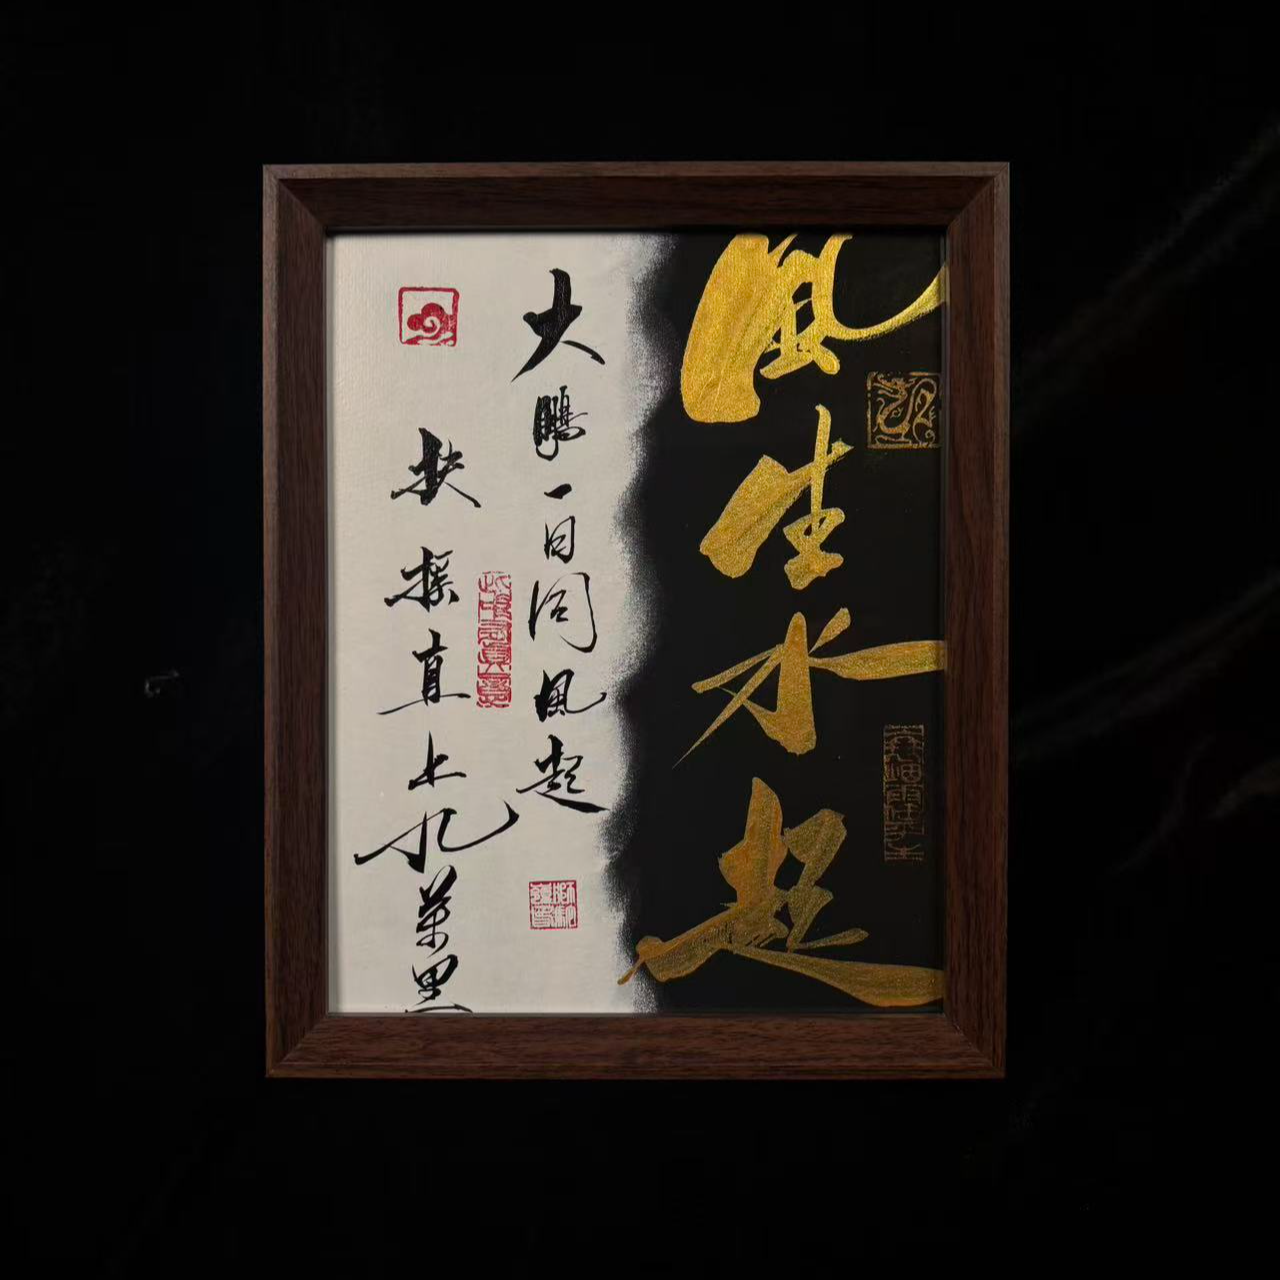 風生水起
大鵬一日同風起
扶摇直上九萬里